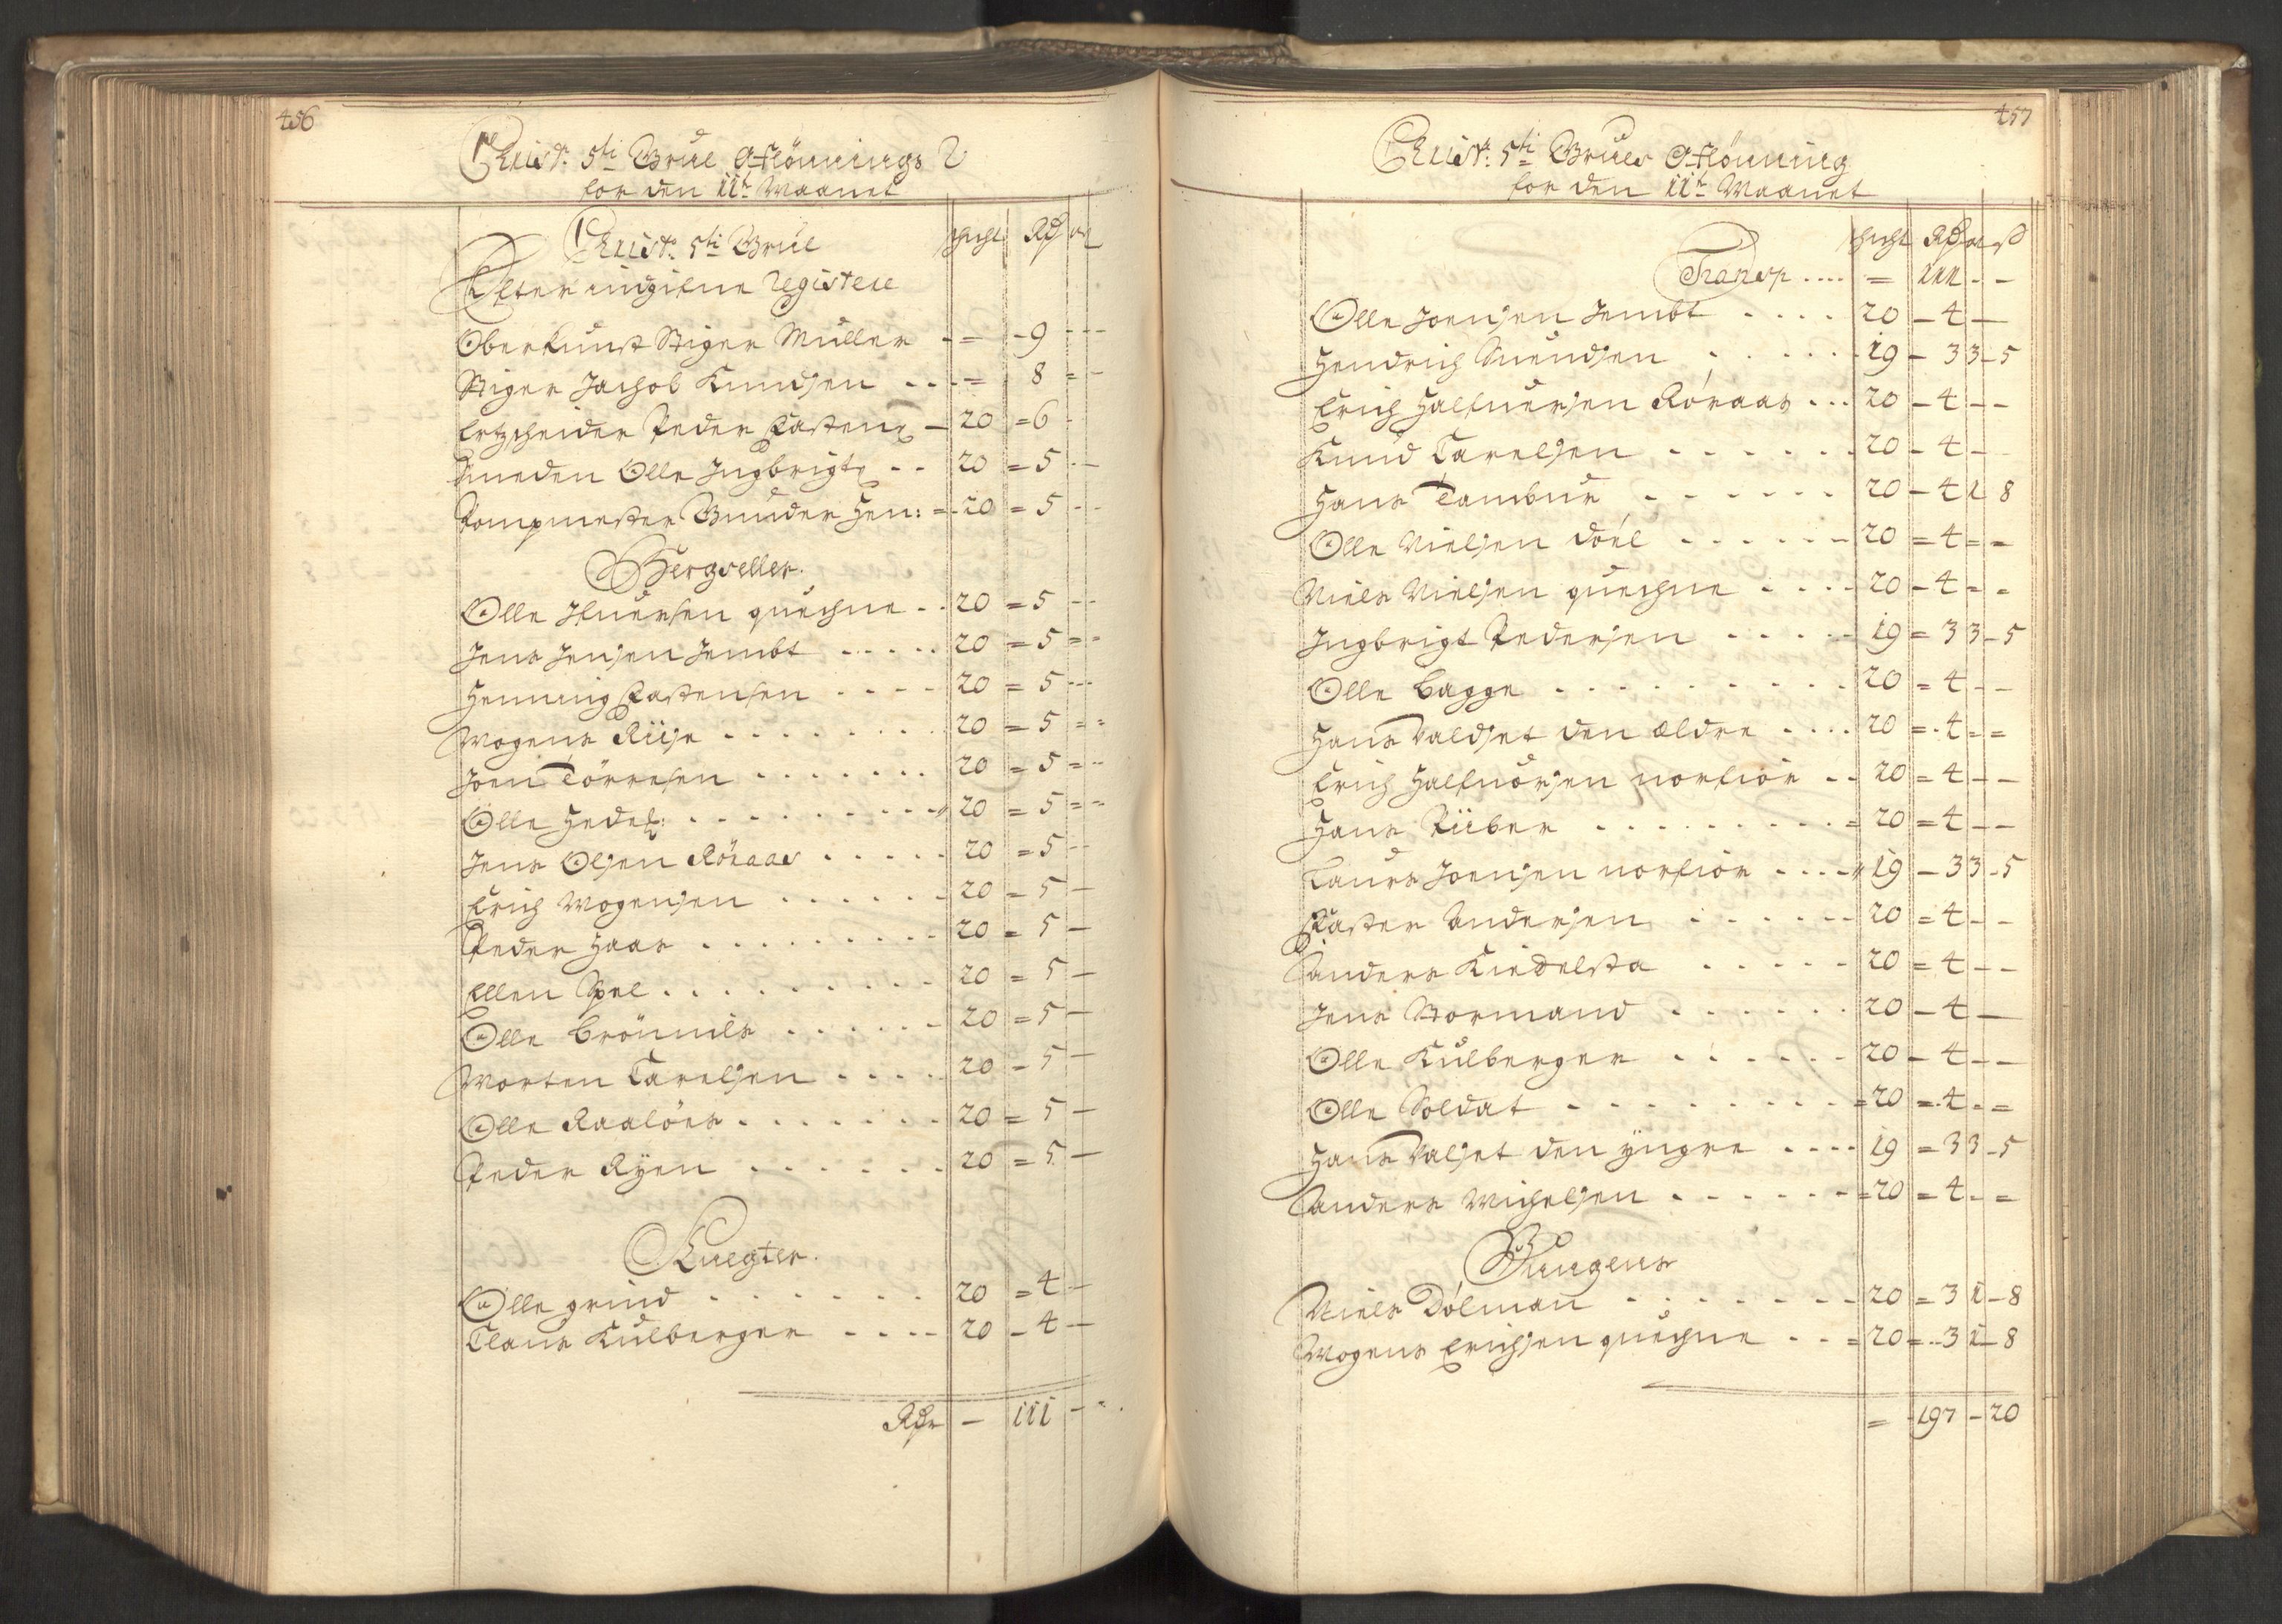 456
Christ: 5ti Grue Afflönnings
for den 11t Maanet
Christ: 5ti Grue
Efter indgifne Register
schicht Rdr ort
Oberkunst Stiger Müller - = - 9 - - -
Stiger Jachob Knudsen - - - = 8 = -
Ertzscheider Peder Pastens - 20 = 6 -
Smeden Olle Ingbrigts - - 20 = 5 - -
Pompmester Gunder Hen: = - 20 = 5 - -
Bergseller.
Olle Ifuersen quechne - - 20 = 5 - -
Jens Jensen Jembt - - - - - 20 = 5 = =
Henning Pastensen - - - - 20 = 5 - - -
Mogens Riise - - - - - - - - 20 = 5 = =
Joen Törresen - - - - - - - 20 = 5 = - -
Olle Hedels: - - - - - - - - - 20 = 5 = =
Jens Olsen Röraas - - - - - 20 = 5 - -
Erich Mogensen - - - - - - 20 = 5 -
Peder Haas - - - - - - - - - 20 = 5 -
Ellen Spel - - - - - - - - - 20 = 5 -
Olle Brönnils - - - - - - 20 = 5 -
Morten Carelsen - - - - 20 - 5 -
Olle Raaløes - - - - - - - 20 = 5 -
Peder Ryen - - - - - - - 20 = 5 -
Knegter.
Olle grind - - - - - - - 20 = 4 -
Claus Kulberger - - - - 20 - 4 -
Rdr - 111 - -
457
Christ: 5ti Grues Afflönning
for den 11t Maanet
schicht Rdr ort ß
Transp - - - - = 111 - -
Olle Joensen Jembt - - - - 20 - 4 -
Hendrich Suendsen - - - - - - 19 - 3 3 - 5
Erich Halfuersen Röraas - - - 20 - 4 - -
Knud Carelsen - - - - - - - 20 - 4 -
Hans Tambur - - - - - - 20 - 4 1 8
Olle Nielsen döel - - - - - - 20 = 4 = =
Niels Nielsen quechne - - - - 20 - 4 = =
Ingbrigt Pedersen - - - - - 19 = 3 3 - 5
Olle Bagge - - - - - - - - - - 20 = 4 - -
Hans Valdset den ældre - - - - 20 = 4 = =
Erich Halfuorsen norfiör - - 20 = 4 - -
Hans Riiber - - - - - - - - - = 20 = 4 - -
Laurs Joensen norfiör - - - - 19 - 3 3 - 5
Pasten Andersen - - - - - - 20 = 4 - -
Anders Kiedelsta - - - - - 20 = 4 - -
Jens Stormand - - - - - - 20 - 4 -
Olle Kulberger - - - - - - 20 - 4 - -
Olle Soldat - - - - - - - - - = 20 = 4 - =
Hans Valset den yngre - - - - 19 = 3 3 - 5
Anders Michelsen - - - - - - = 20 = 4 - =
Jungens
Niels Dölman - - - - - - - 20 = 3 1 - 8
Mogens Erichsen quechne - - = 20 = 3 1 - 8
= 197 - 20